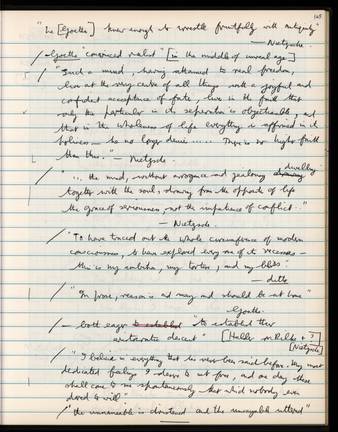 165
"he [Goethe] knew enough to wrestle fruitfully with antiquity"
— Nietzsche.
/ Goethe "convinced realist" [in the middle of unreal age]
/ "Such a mind, having attained to real freedom,
lives at the very centre of all things with a joyful and
confident acceptance of fate, lives in the faith that
only the particular in its separation is objectionable, and
that in the wholeness of life everything is affirmed in its
holiness — he no longer denies ...... There is no higher faith
than this. — Nietzsche.
/ "... the mind, without arrogance and jealousy dwelling
together with the soul, drawing from the opposites of life
the grace of seriousness, not the impatience of conflict.."
— Nietzsche.
/ "To have traced out the whole circumference of modern
consciousness, to have explored every one of its recesses —
this is my ambition, my torture, and my bliss."
— ditto
/ "In prose, reason is and may and should be at home"
Goethe.
/ — both eager to established "to establish their
aristocratic descent" [Heller on Rilke + ?]
[Nietzsche]
/ "I believe in everything that has never been said before. My most
dedicated feelings I desire to set free, and one day there
shall come to me spontaneously that which nobody ever
dared to will"
"the unnameable is christened and the unsayable uttered"